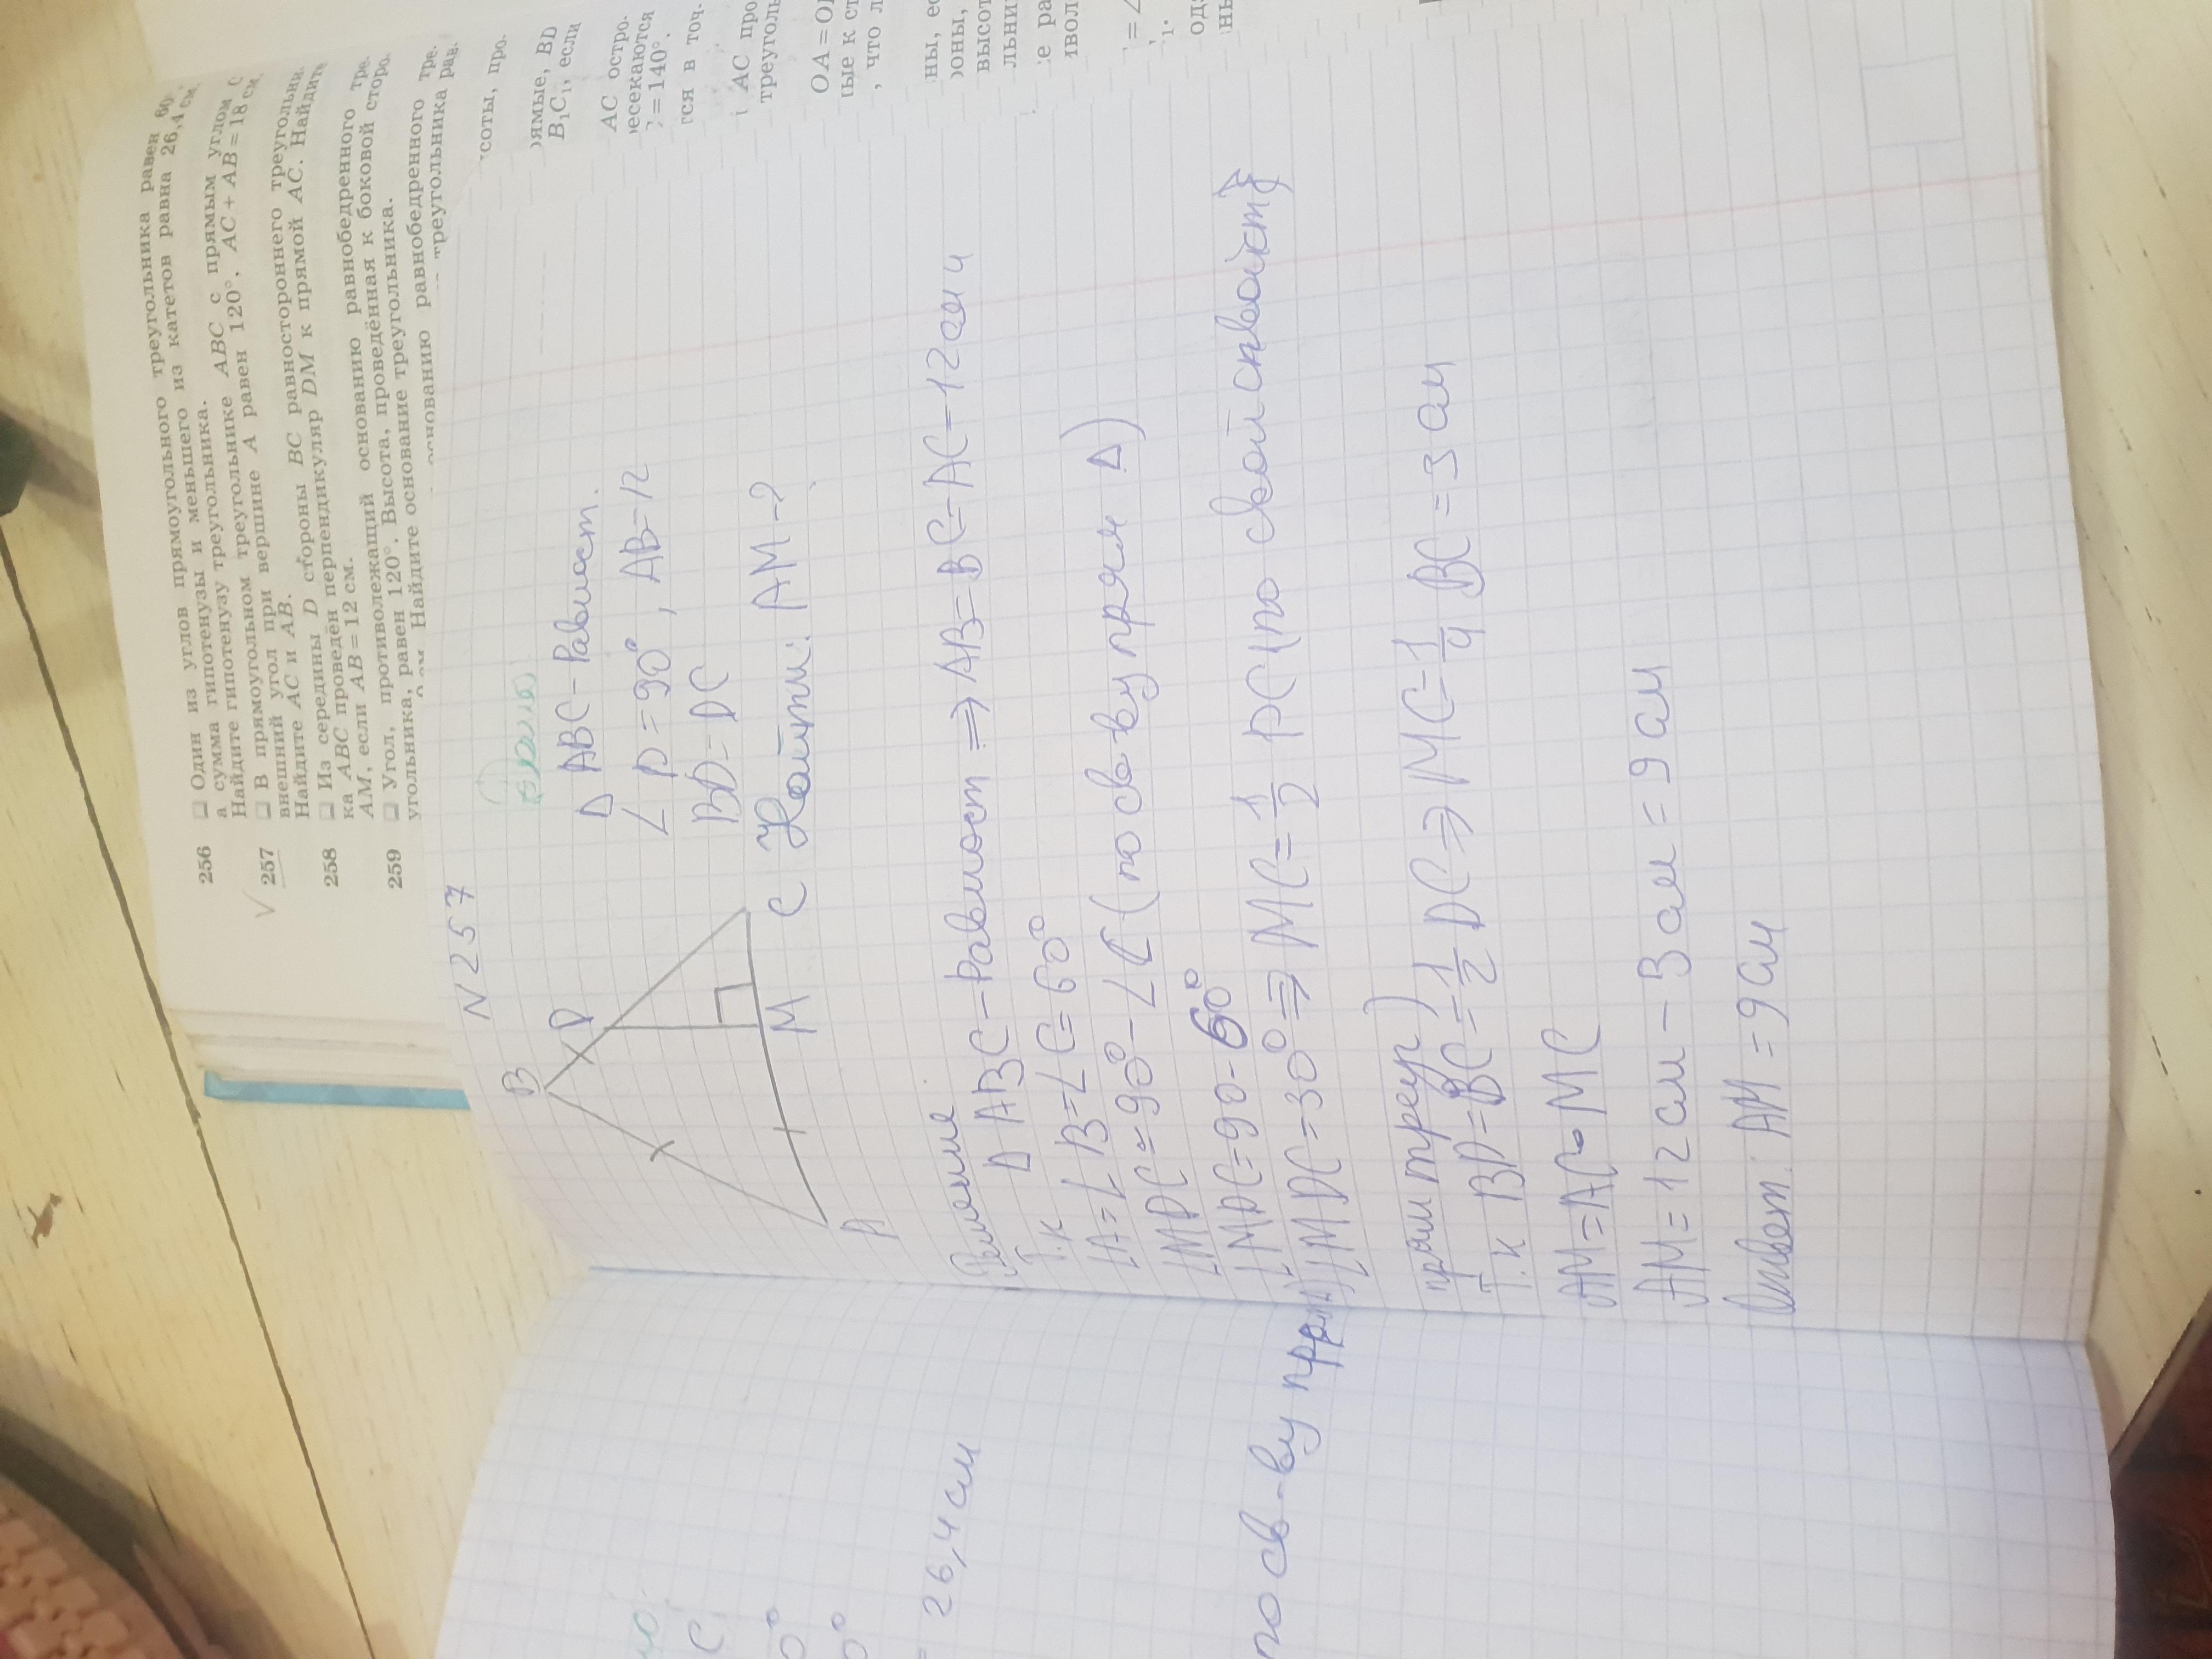 256 Один из углов прямоугольного треугольника равен 60°,
а сумма гипотенузы и меньшего из катетов равна 26,4 см.
Найдите гипотенузу треугольника.
257 В прямоугольном треугольнике ABC с прямым углом C
внешний угол при вершине A равен 120°, AC + AB = 18 см.
Найдите AC и AB.
258 Из середины D стороны BC равностороннего треугольни-
ка ABC проведён перпендикуляр DM к прямой AC. Найдите
AM, если AB = 12 см.
259 Угол, противолежащий основанию равнобедренного тре-
угольника, равен 120°. Высота, проведённая к боковой сторо-
Найдите основание треугольника.
основанию равнобедренного тре-
треугольника рав-
соты, про-
ямые, BD
B₁C₁, если
AC остро-
есекаются
= 140°.
ся в точ-
AC про
треуголь
OA = O
ые к ст
, что л
ны, ес
роны,
высот
льни
е ра
= ∠
N 257
B
D
M
C
A
Дано
Δ ABC – Равност.
∠ D = 90°, AB = 12
BD = DC
Найти: AM – ?
Решение
Т.к Δ ABC – Равност ⇒ AB = BC = AC = 12 см и
∠A = ∠B = ∠C = 60°
∠MDC = 90° – ∠C (по св-ву прям Δ)
∠MDC = 90 – 60°
∠MDC = 30° ⇒ MC = 1/2 DC (по свойству
прям треуг)
Т.к BD = BC = 1/2 DC ⇒ MC = 1/4 BC = 3 см
AM = AC – MC
AM = 12 см – 3 см = 9 см
Ответ: AM = 9 см
C
0°
0°
= 26,4 см
по св-ву прям